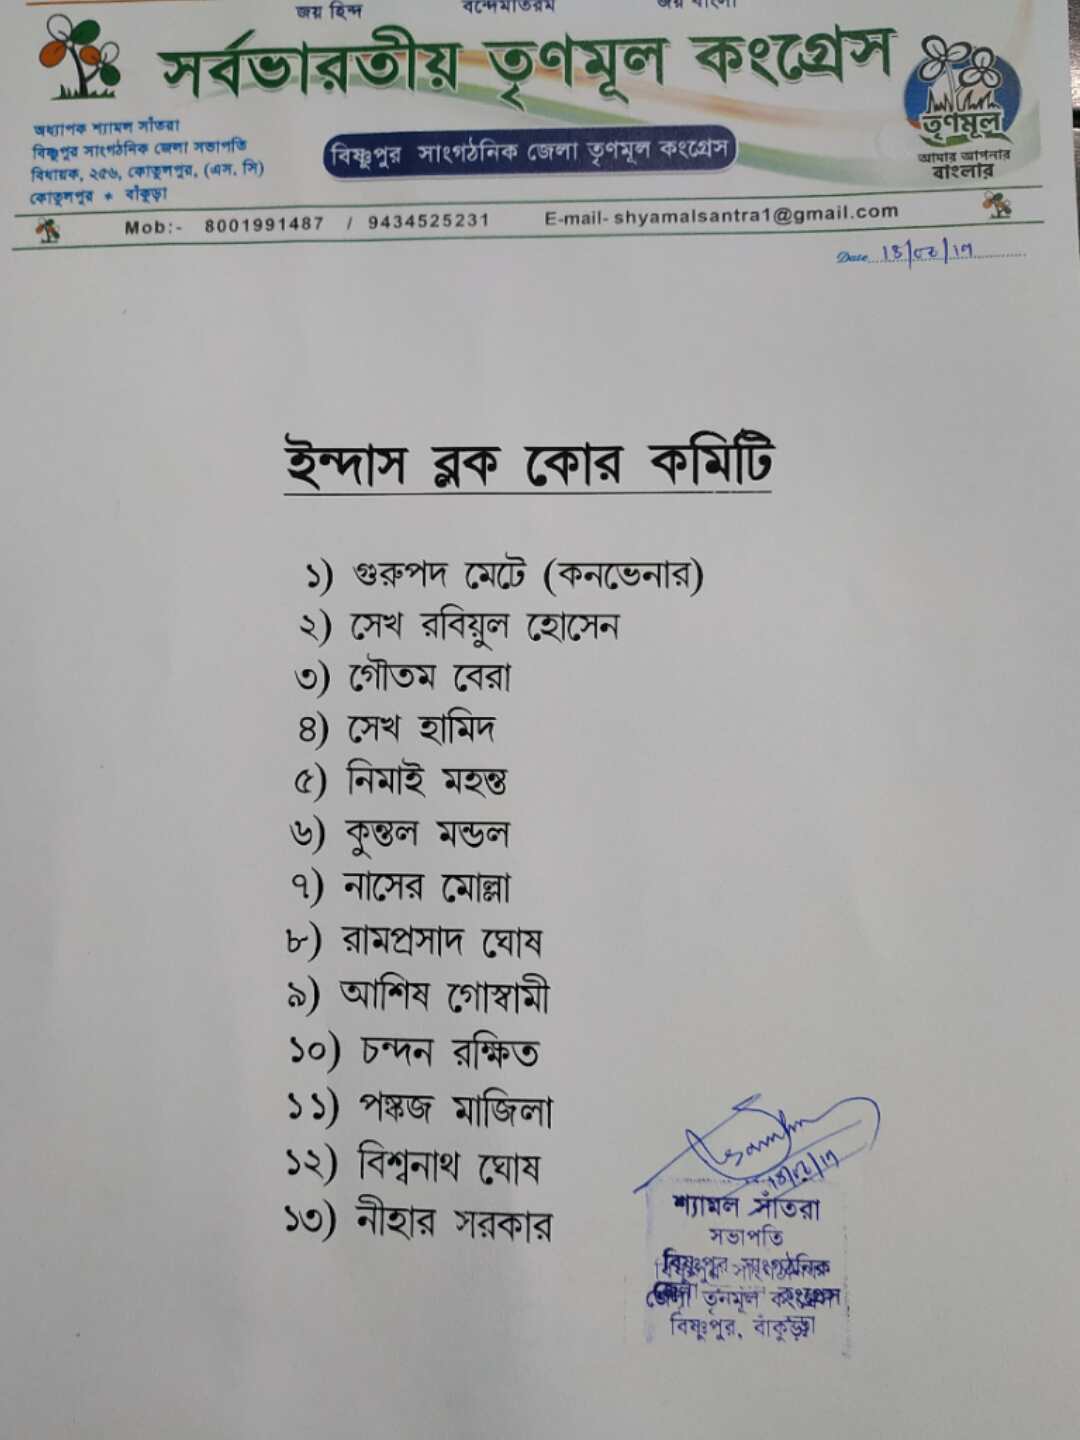 জয় হিন্দ বন্দেমাতরম জয় বাংলা
সর্বভারতীয় তৃণমূল কংগ্রেস
তৃণমূল
আমার আপনার
বাংলার
অধ্যাপক শ্যামল সাঁতরা
বিষ্ণুপুর সাংগঠনিক জেলা সভাপতি
বিধায়ক, ২৫৬, কোতুলপুর, (এস. সি)
কোতুলপুর * বাঁকুড়া
বিষ্ণুপুর সাংগঠনিক জেলা তৃণমূল কংগ্রেস
Mob:- 8001991487 / 9434525231 E-mail- shyamalsantra1@gmail.com
Date
ইন্দাস ব্লক কোর কমিটি
১) গুরুপদ মেটে (কনভেনার)
২) সেখ রবিয়ুল হোসেন
৩) গৌতম বেরা
৪) সেখ হামিদ
৫) নিমাই মহন্ত
৬) কুন্তল মন্ডল
৭) নাসের মোল্লা
৮) রামপ্রসাদ ঘোষ
৯) আশিষ গোস্বামী
১০) চন্দন রক্ষিত
১১) পঙ্কজ মাজিলা
১২) বিশ্বনাথ ঘোষ
১৩) নীহার সরকার
শ্যামল সাঁতরা
সভাপতি
বিষ্ণুপুর সাংগঠনিক
জেলা তৃনমূল কংগ্রেস
বিষ্ণুপুর, বাঁকুড়া